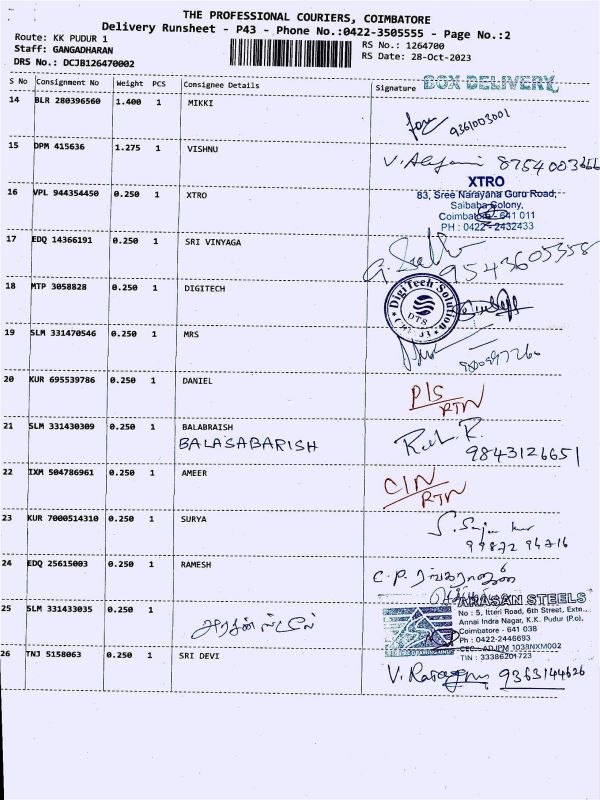 THE PROFESSIONAL COURIERS, COIMBATORE
Delivery Runsheet - P43 - Phone No.:0422-3505555 - Page No.:2
Route: KK PUDUR 1
Staff: GANGADHARAN
DRS No.: DCJB126470002
RS No.: 1264700
RS Date: 28-Oct-2023
S No Consignment No Weight PCS Consignee Details Signature BOX DELIVERY
14 BLR 280396560 1.400 1 MIKKI
9361003001
15 DPM 415636 1.275 1 VISHNU
8754003666
16 VPL 944354450 0.250 1 XTRO
XTRO
83, Sree Narayana Guru Road,
Saibaba Colony,
Coimbatore - 641 011
PH : 0422 - 2432433
17 EDQ 14366191 0.250 1 SRI VINYAGA
9543605358
18 MTP 3058828 0.250 1 DIGITECH
DigiTech Solution
DTS
19 SLM 331470546 0.250 1 MRS
20 KUR 695539786 0.250 1 DANIEL
P/S
RTN
21 SLM 331430309 0.250 1 BALABRAISH
BALASABARISH
9843126651
22 IXM 504786961 0.250 1 AMEER
C/N
RTN
23 KUR 7000514310 0.250 1 SURYA
99872 94716
24 EDQ 25615003 0.250 1 RAMESH
C.P.
25 SLM 331433035 0.250 1
ARASAN STEELS
No : 5, Itteri Road, 6th Street, Extn..
Annai Indra Nagar, K.K. Pudur (P.o),
Coimbatore - 641 038
Ph : 0422-2446693
CEC.. ADJPM 1038NXM002
TIN : 33386201723
26 TNJ 5158063 0.250 1 SRI DEVI
9363144626